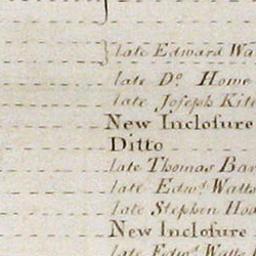 late Edward Wa
late Do. Howe
late Joſeph Kit
New Incloſure
Ditto
late Thomas Bar
late Edwd. Watts
late Stephen Hoo
New Incloſure
late Edwd. Watts